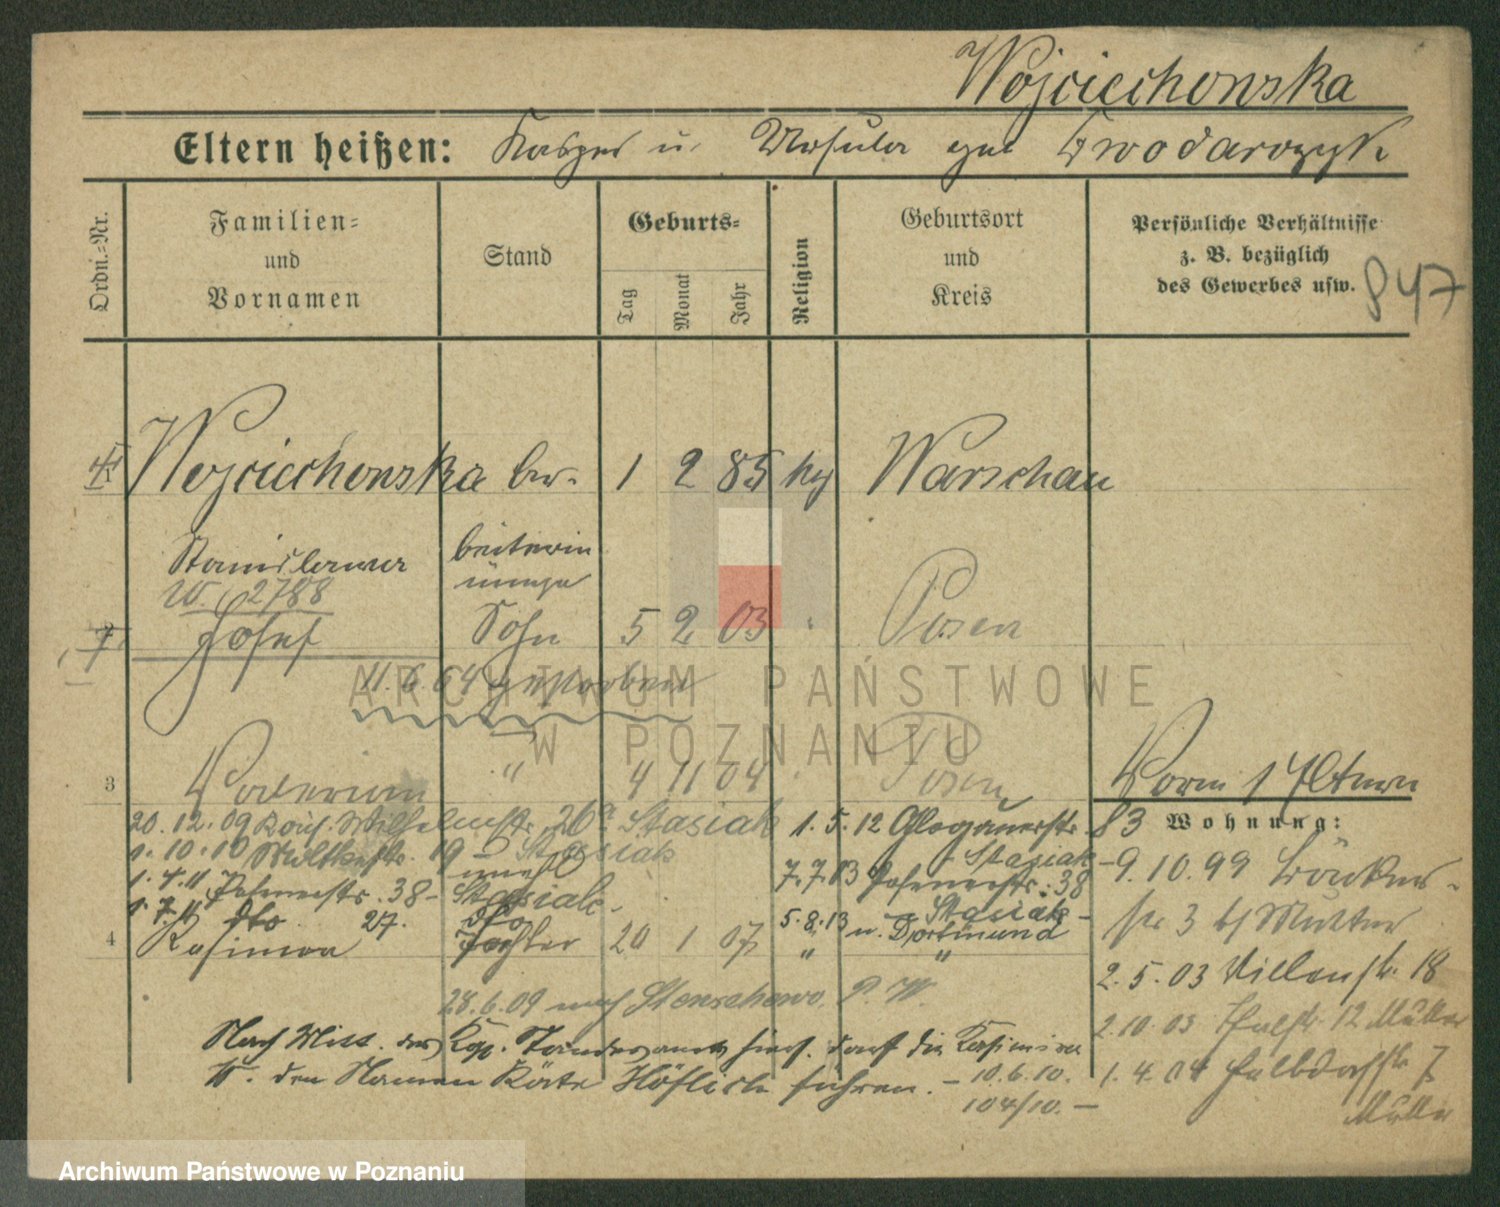 Wojciechowska
Eltern heißen: Kasper u. Ursula geb
Ordn.-Nr.
Familien- und Vornamen
Stand
Geburts-
Tag Monat Jahr
Religion
Geburtsort und Kreis
Persönliche Verhältnisse
z. B. bezüglich
des Gewerbes usw.
847
Wojciechowska 1 2 85 Warschau
Stanislawa beiterin
W. 2788
Josef Sohn 5 2 03 Posen
11.6.04 gestorben
3 " 4 11 04 Posen
Vorm 1 Eltern
20.12.09 Wilhelmstr. 26a Stasiak 1.5.12 Glogauerstr. 83
Wohnung:
1.10.10 Moltkestr. 19 - Stasiak
1.4.11 38 - Stasiak 7.7.13 38 Stasiak
1.7.11 dto 27. dto 5.8.13 n. Dortmund Stasiak
4 Kasimira Tochter 20 1 07 " "
9.10.99
str 3 b/ Mutter
2.5.03 18
28.6.09 nach Stenschewo P. W.
2.10.03 12 Müller
Nach Mitt. des Kgl. Standesamts hier. darf die Kasimira
W. den Namen Käte Höflich führen. - 10.6.10.
104/10. -
1.4.04 7
Müller
ARCHIWUM PAŃSTWOWE
W POZNANIU
Archiwum Państwowe w Poznaniu